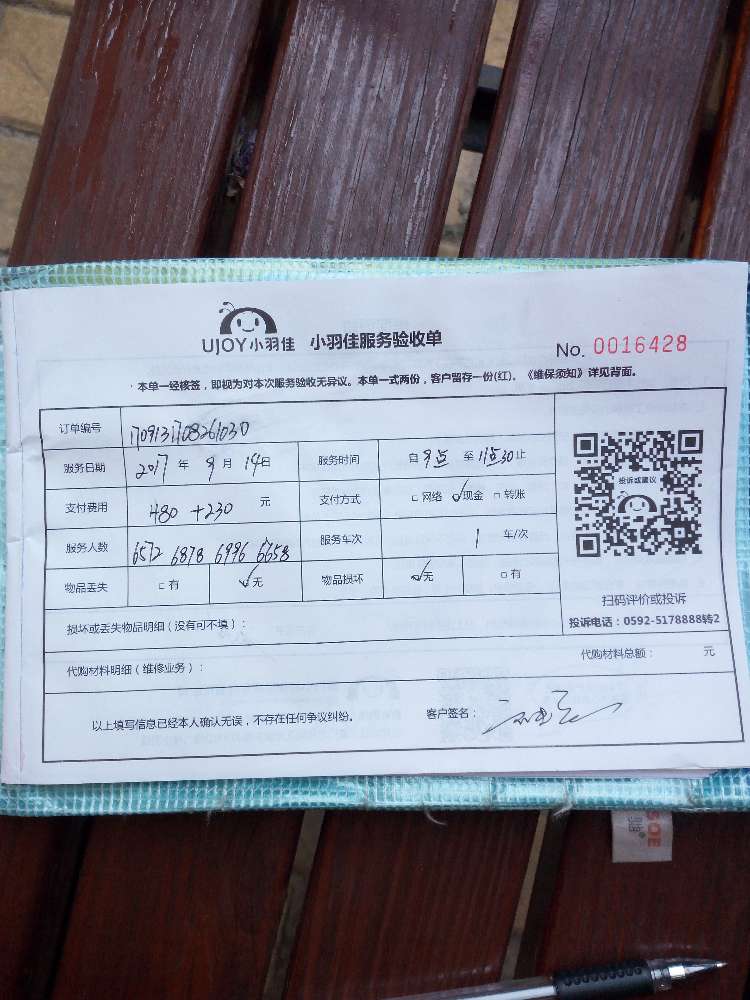 UJOY小羽佳 小羽佳服务验收单
No. 0016428
·本单一经核签，即视为对本次服务验收无异议。本单一式两份，客户留存一份(红)。《维保须知》详见背面。
订单编号 1709131708261030
服务日期 2017 年 9 月 14日 服务时间 自 9点 至 11点30止
支付费用 480 +230 元 支付方式 □ 网络 ☑现金 □ 转账
服务人数 6572 6878 6996 6658 服务车次 1 车/次
物品丢失 □ 有 ☑无 物品损坏 ☑无 □ 有
投诉或建议
扫码评价或投诉
投诉电话：0592-5178888转2
损坏或丢失物品明细（没有可不填）：
代购材料明细（维修业务）： 代购材料总额： 元
以上填写信息已经本人确认无误，不存在任何争议纠纷。 客户签名：